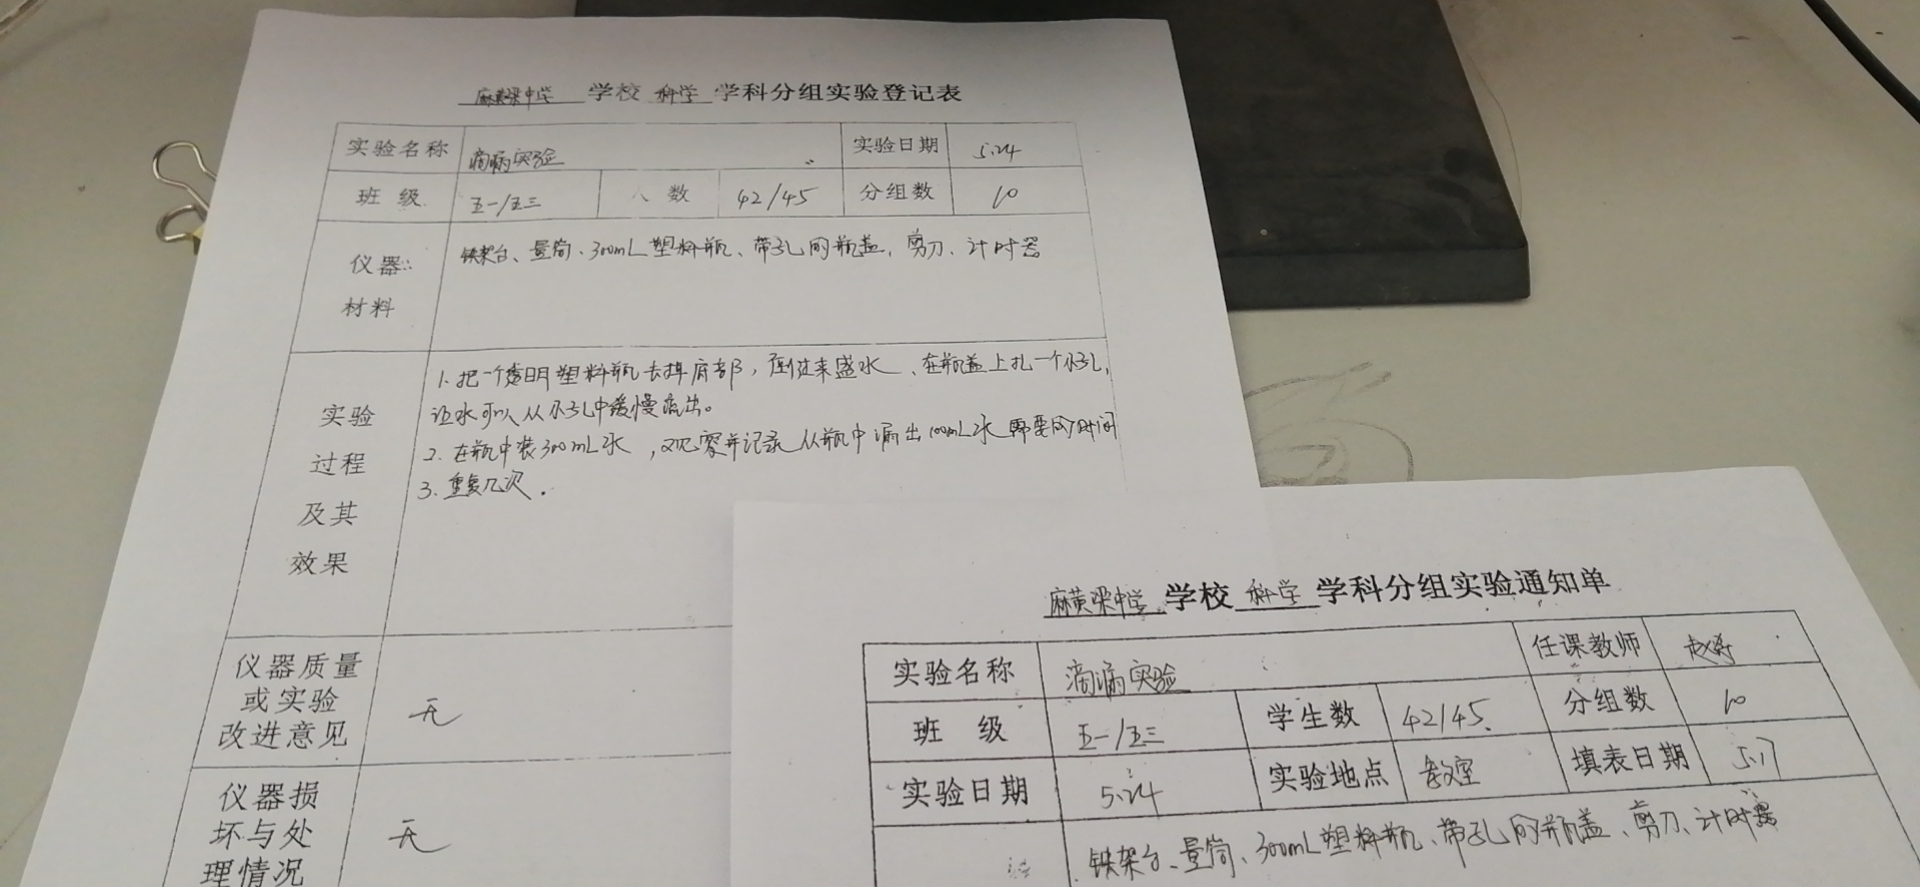 麻黄梁中学 学校 科学 学科分组实验登记表
实验名称 滴漏实验 实验日期 5.24
班 级 五一/五三 人 数 42/45 分组数 10
仪器 材料 铁架台、量筒、300mL塑料瓶、带孔的瓶盖、剪刀、计时器
实验 过程 及其 效果
1. 把一个透明塑料瓶去掉底部，倒过来盛水、在瓶盖上扎一个小孔，
让水可以从小孔中缓慢流出。
2. 在瓶中装300mL水，观察并记录从瓶中漏出100mL水需要的时间
3. 重复几次.
仪器质量 或实验 改进意见 无
仪器损 坏与处 理情况 无
麻黄梁中学 学校 科学 学科分组实验通知单
实验名称 滴漏实验 任课教师
班 级 五一/五三 学生数 42/45 分组数 10
实验日期 5.24 实验地点 教室 填表日期 5.17
铁架台、量筒、300mL塑料瓶、带孔的瓶盖、剪刀、计时器